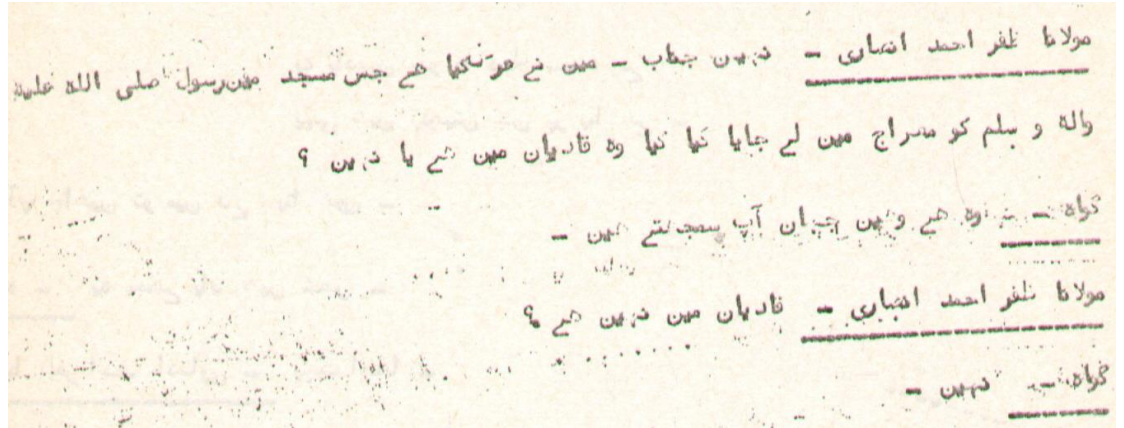 مولانا ظفر احمد انصاری - نہین جناب - مین نے عرض کیا ھے جس مسجد مین رسول صلی اللہ علیہ
والہ و سلم کو معراج مین لے جایا گیا تھا وہ قادیان مین ھے یا نہین ؟
گواہ - وہ ھے وھین جہان آپ سمجھتے ھین -
مولانا ظفر احمد انصاری - قادیان مین نہین ھے ؟
گواہ - نہین -